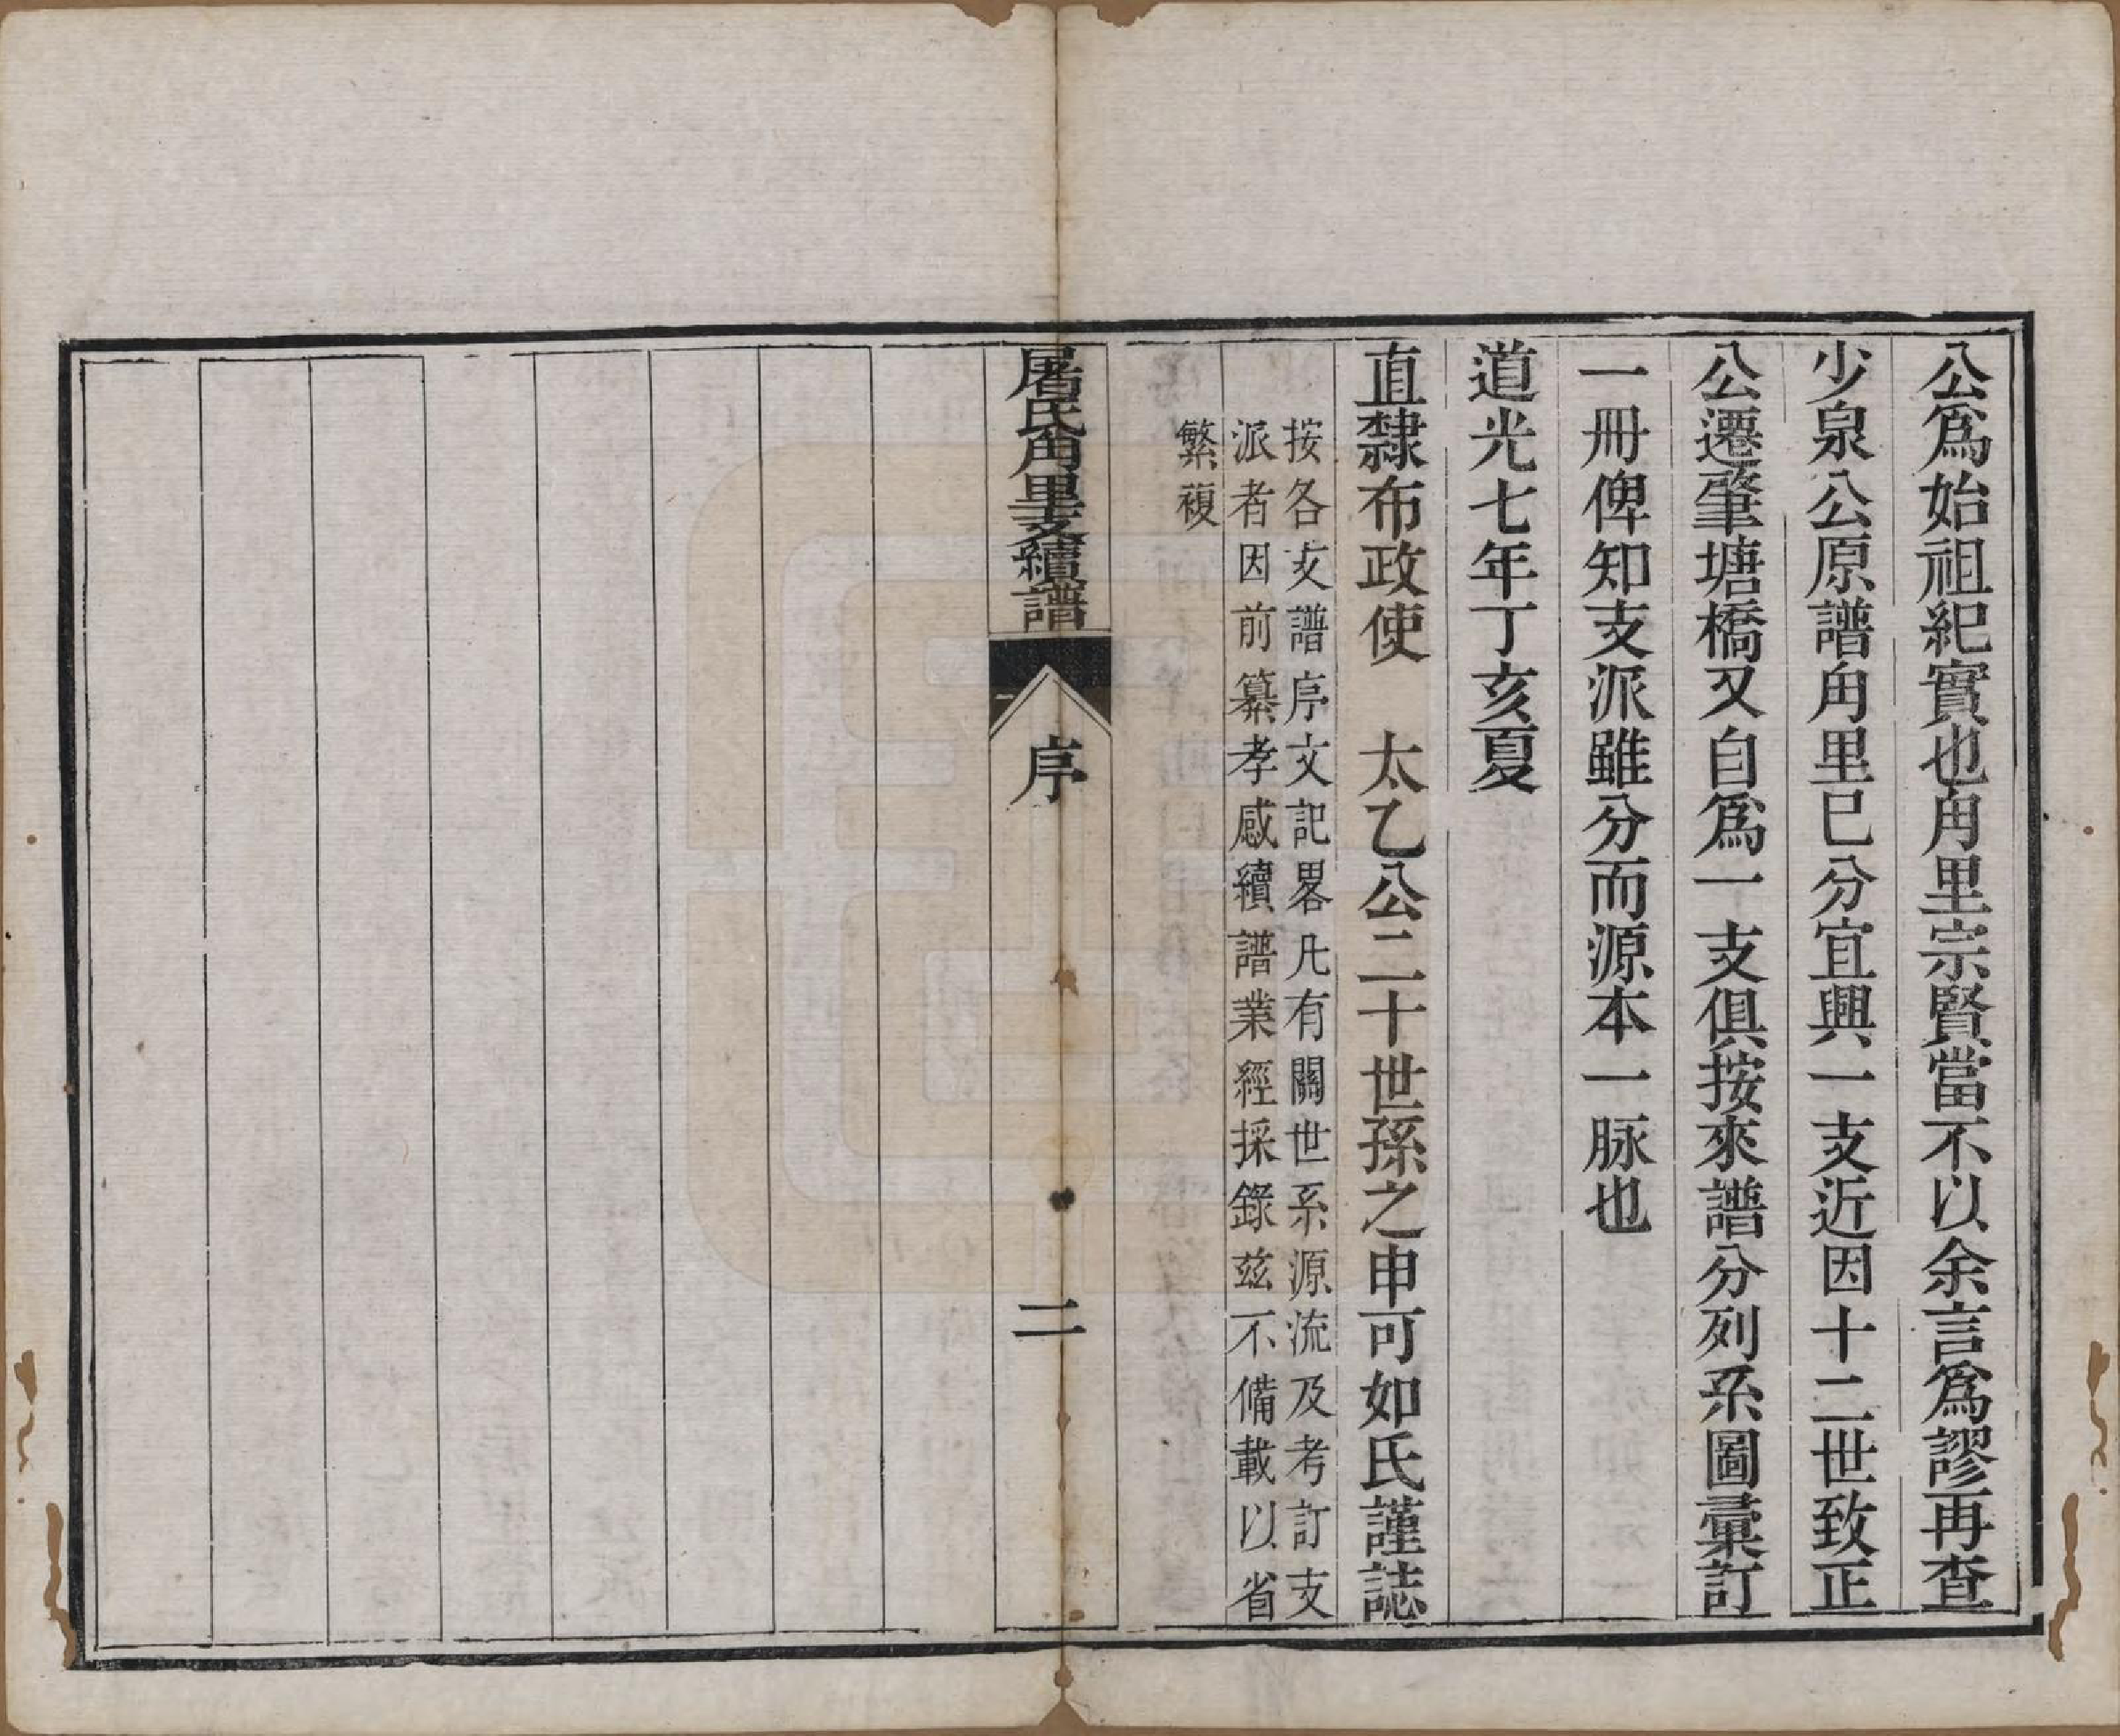 公爲始祖紀實也甪里宗賢當不以余言爲謬再查
少泉公原譜甪里已分宜興一支近因十二世致正
公遷肇塘橋又自爲一支俱按來譜分列系圖彙訂
一冊俾知支派雖分而源本一脉也
道光七年丁亥夏
直隸布政使　太乙公二十世孫之申可如氏謹誌
按各支譜序文記畧凡有關世系源流及考訂支
派者因前纂孝感續譜業經採錄兹不備載以省
繁複
屠氏甪里支續譜
序
二